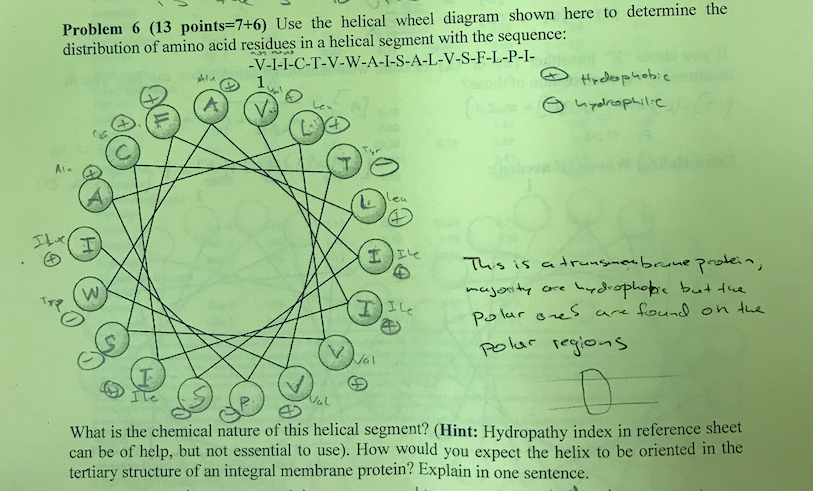 Problem 6 (13 points=7+6) Use the helical wheel diagram shown here to determine the
distribution of amino acid residues in a helical segment with the sequence:
-V-I-I-C-T-V-W-A-I-S-A-L-V-S-F-L-P-I-
1
⊕ Hydrophobic
⊖ hydrophilic
Ala ⊕
A
Val ⊕
V
Leu
L ⊕
⊕
F
⊕
C
Tyr
T ⊖
Ala ⊕
A
L
Leu
⊕
⊕
I
I
Ile
⊕
Trp
⊖
W
I
Ile
⊕
⊖
S
V
Val
⊕
⊕
I
Ile
S
⊖
P
⊖
V
Val
⊕
This is a transmembrane protein,
majority are hydrophobic but the
polar ones are found on the
polar regions
What is the chemical nature of this helical segment? (Hint: Hydropathy index in reference sheet
can be of help, but not essential to use). How would you expect the helix to be oriented in the
tertiary structure of an integral membrane protein? Explain in one sentence.